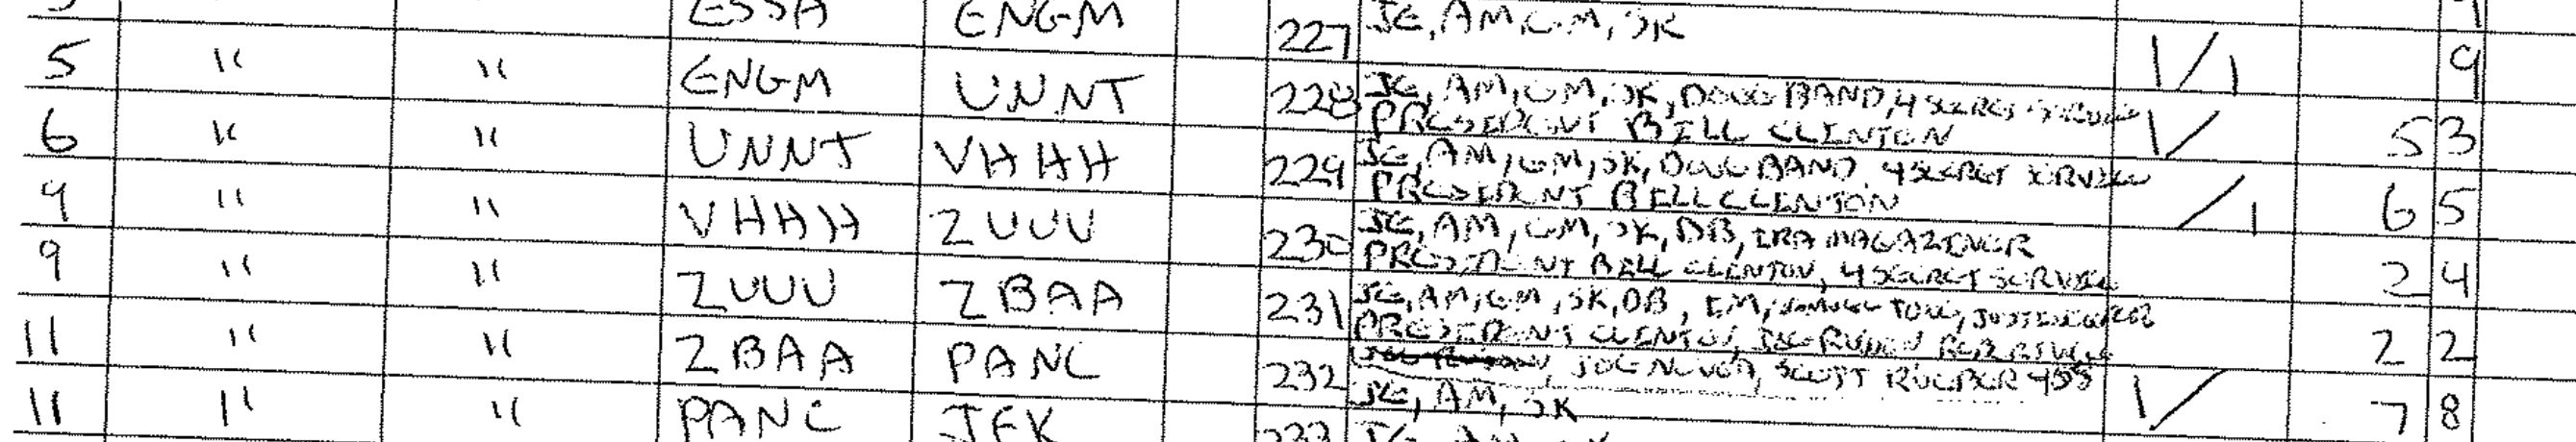 3 ESSA ENGM 227 JE, AM, GM, SK 9
5 " " ENGM UNNT 228 JE, AM, GM, SK, DOUG BAND, 4 SECRET SERVICE 1/1 9
PRESIDENT BILL CLINTON
6 " " UNNT VHHH 229 JE, AM, GM, SK, DOUG BAND, 4 SECRET SERVICE 1/ 5 3
PRESIDENT BILL CLINTON
9 " " VHHH ZUUU 230 JE, AM, GM, SK, DB, IRA MAGAZINER /1 6 5
PRESIDENT BILL CLINTON, 4 SECRET SERVICE
9 " " ZUUU ZBAA 231 JE, AM, GM, SK, DB, IM, 2 4
PRESIDENT CLINTON,
11 " " ZBAA PANC 232 JE, AM, SK 2 2
11 " " PANC JFK 233 1/ 7 8